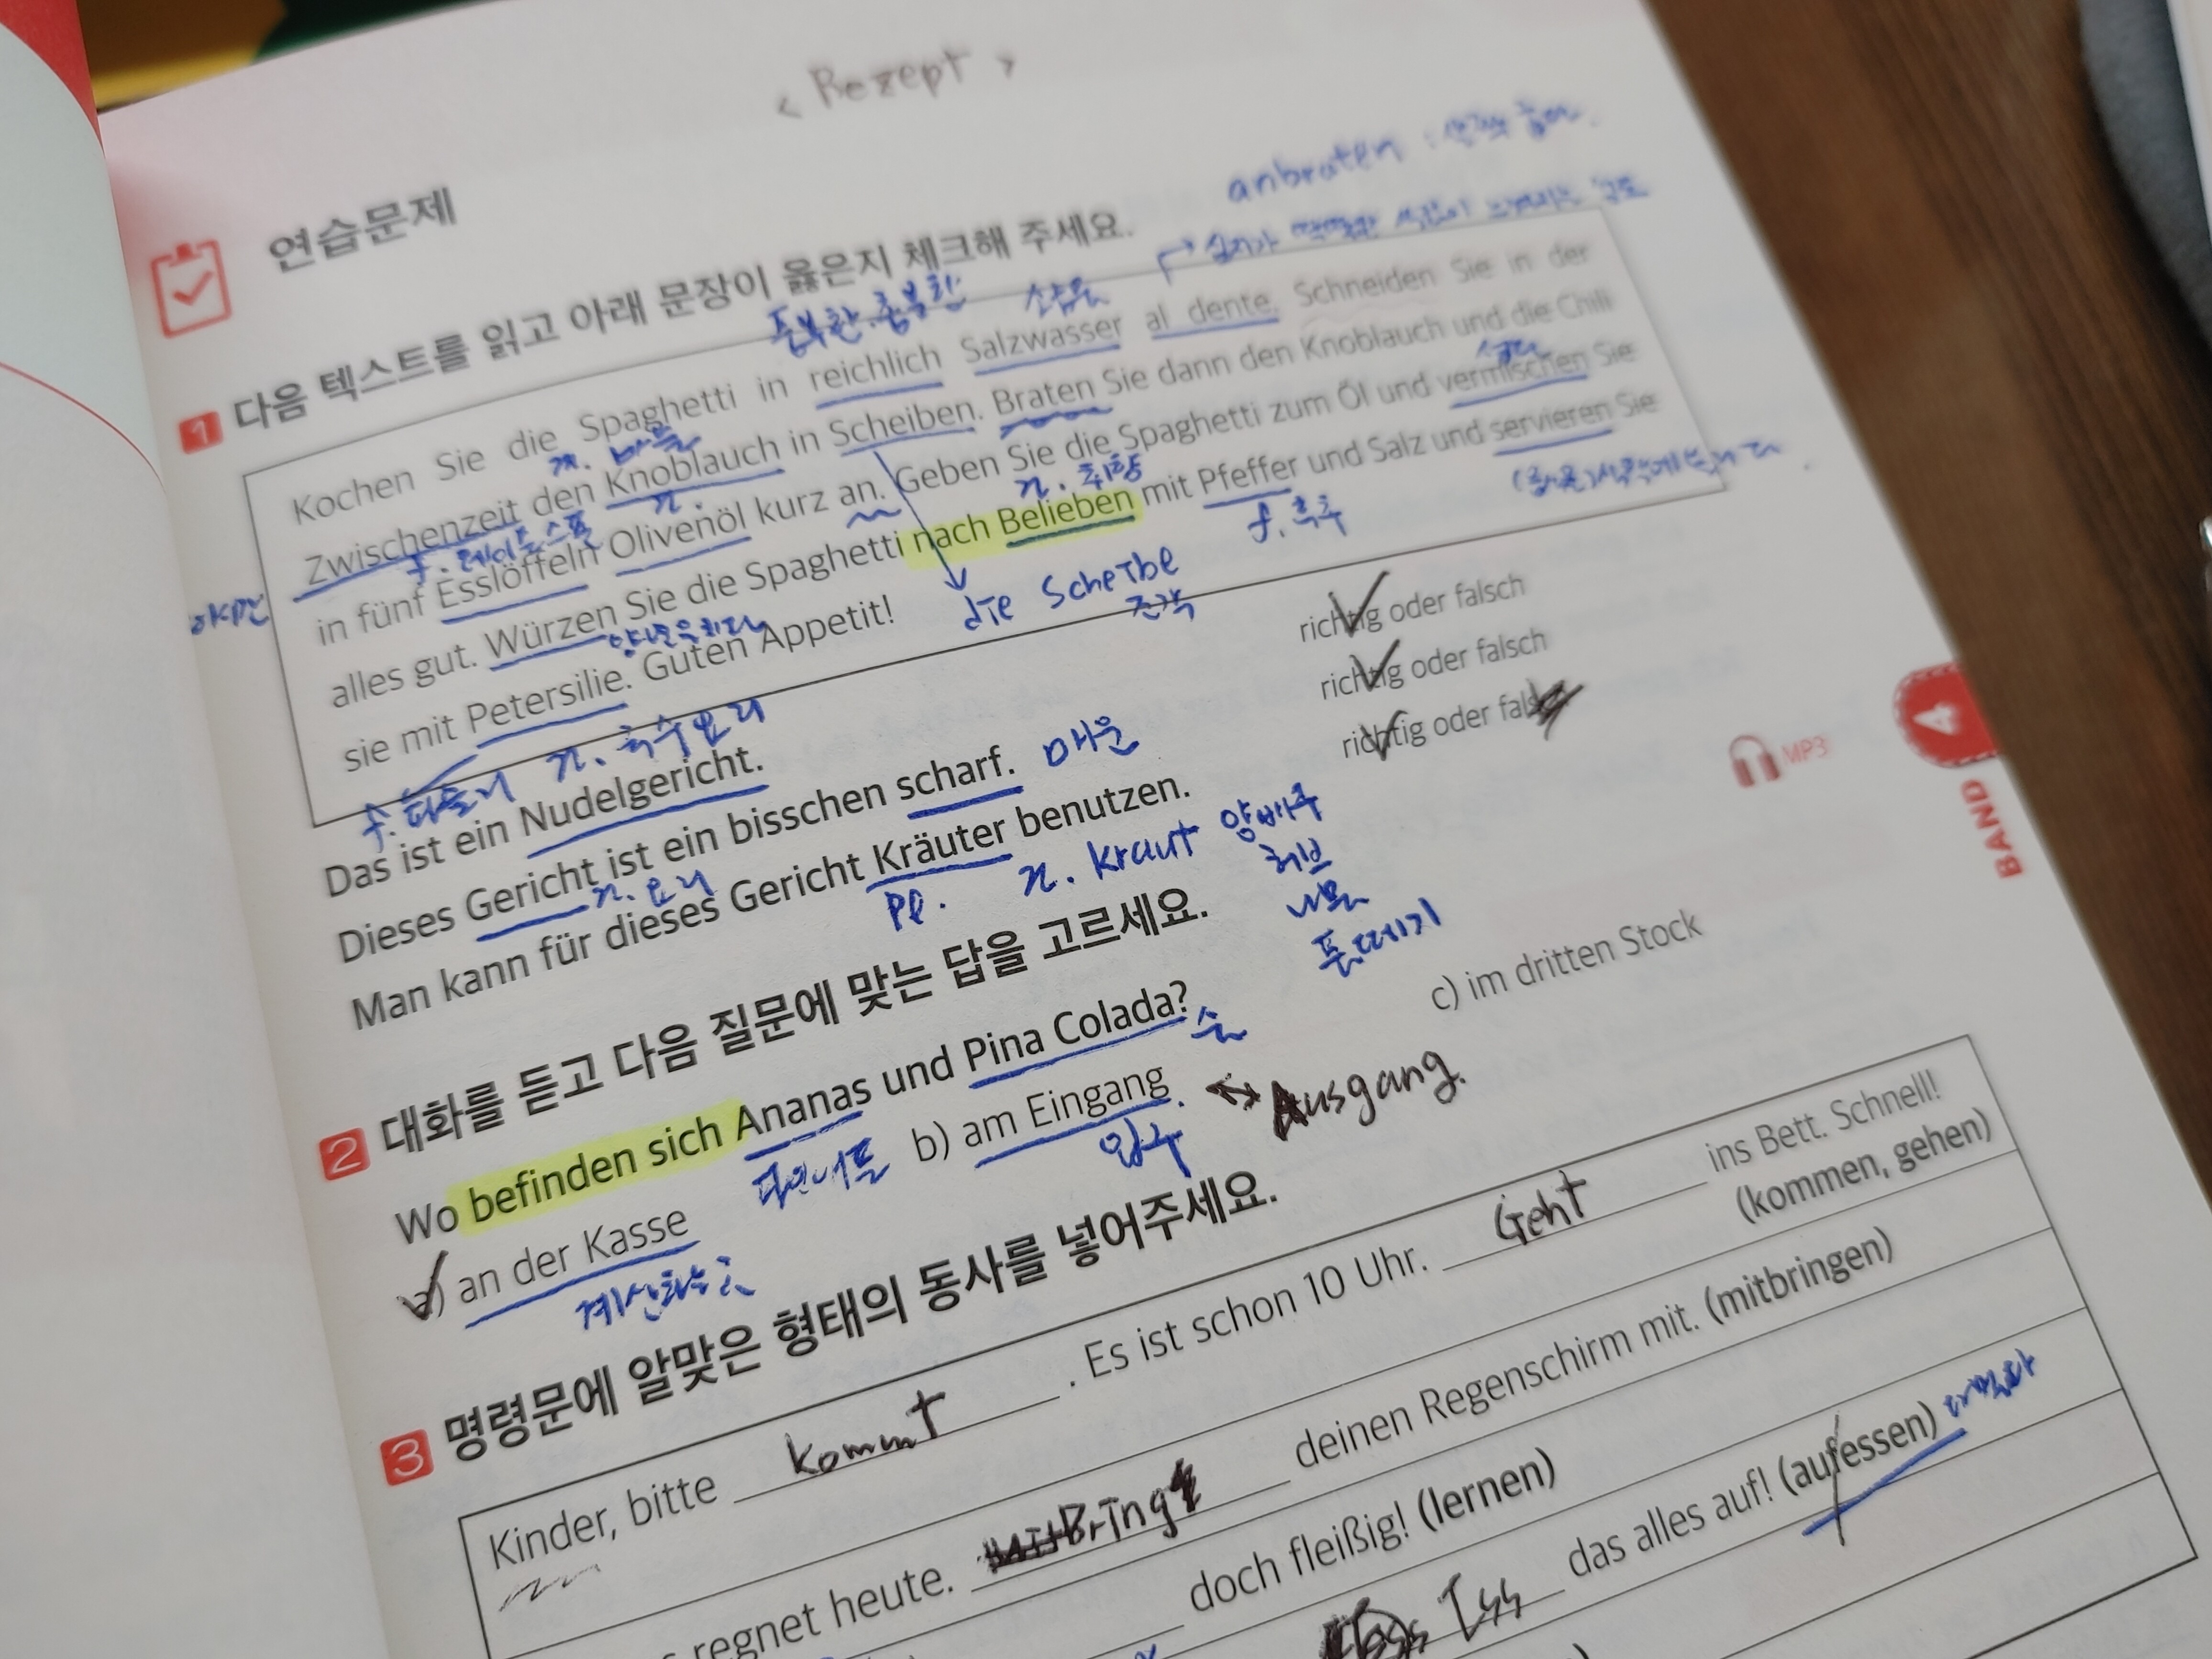 < Rezept >
연습문제
anbraten :
1 다음 텍스트를 읽고 아래 문장이 옳은지 체크해 주세요.
풍부한. 소금물
Kochen Sie die Spaghetti in reichlich Salzwasser al dente. Schneiden Sie in der
n. 마늘
Zwischenzeit den Knoblauch in Scheiben. Braten Sie dann den Knoblauch und die Chili
f. 테이블스푼 n. n. 취향
in fünf Esslöffeln Olivenöl kurz an. Geben Sie die Spaghetti zum Öl und vermischen Sie
alles gut. Würzen Sie die Spaghetti nach Belieben mit Pfeffer und Salz und servieren Sie
f. 후추
sie mit Petersilie. Guten Appetit!
die Scheibe
조각
f. 파슬리 n.
Das ist ein Nudelgericht. richtig oder falsch
Dieses Gericht ist ein bisschen scharf. 매운 richtig oder falsch
n. 요리
Man kann für dieses Gericht Kräuter benutzen. richtig oder falsch
Pl. n. Kraut 양배추
허브
MP3
4
BAND
2 대화를 듣고 다음 질문에 맞는 답을 고르세요.
Wo befinden sich Ananas und Pina Colada? 술
파인애플
a) an der Kasse b) am Eingang. ↔ Ausgang. c) im dritten Stock
입구
3 명령문에 알맞은 형태의 동사를 넣어주세요.
Kinder, bitte kommt . Es ist schon 10 Uhr. Geht ins Bett. Schnell!
(kommen, gehen)
regnet heute. Bring deinen Regenschirm mit. (mitbringen)
doch fleißig! (lernen)
Iss das alles auf! (aufessen)